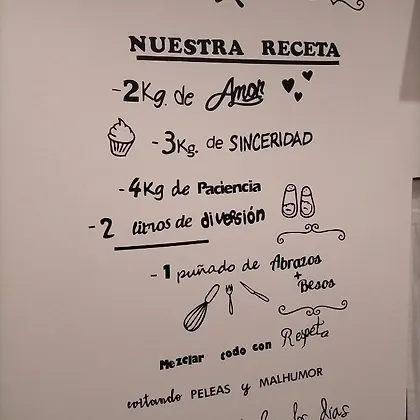 NUESTRA RECETA
-2Kg. de Amor
-3Kg. de SINCERIDAD
-4Kg de Paciencia
-2 litros de diversión
-1 puñado de Abrazos
+
Besos
Mezclar todo con Respeto
evitando PELEAS y MALHUMOR
los días